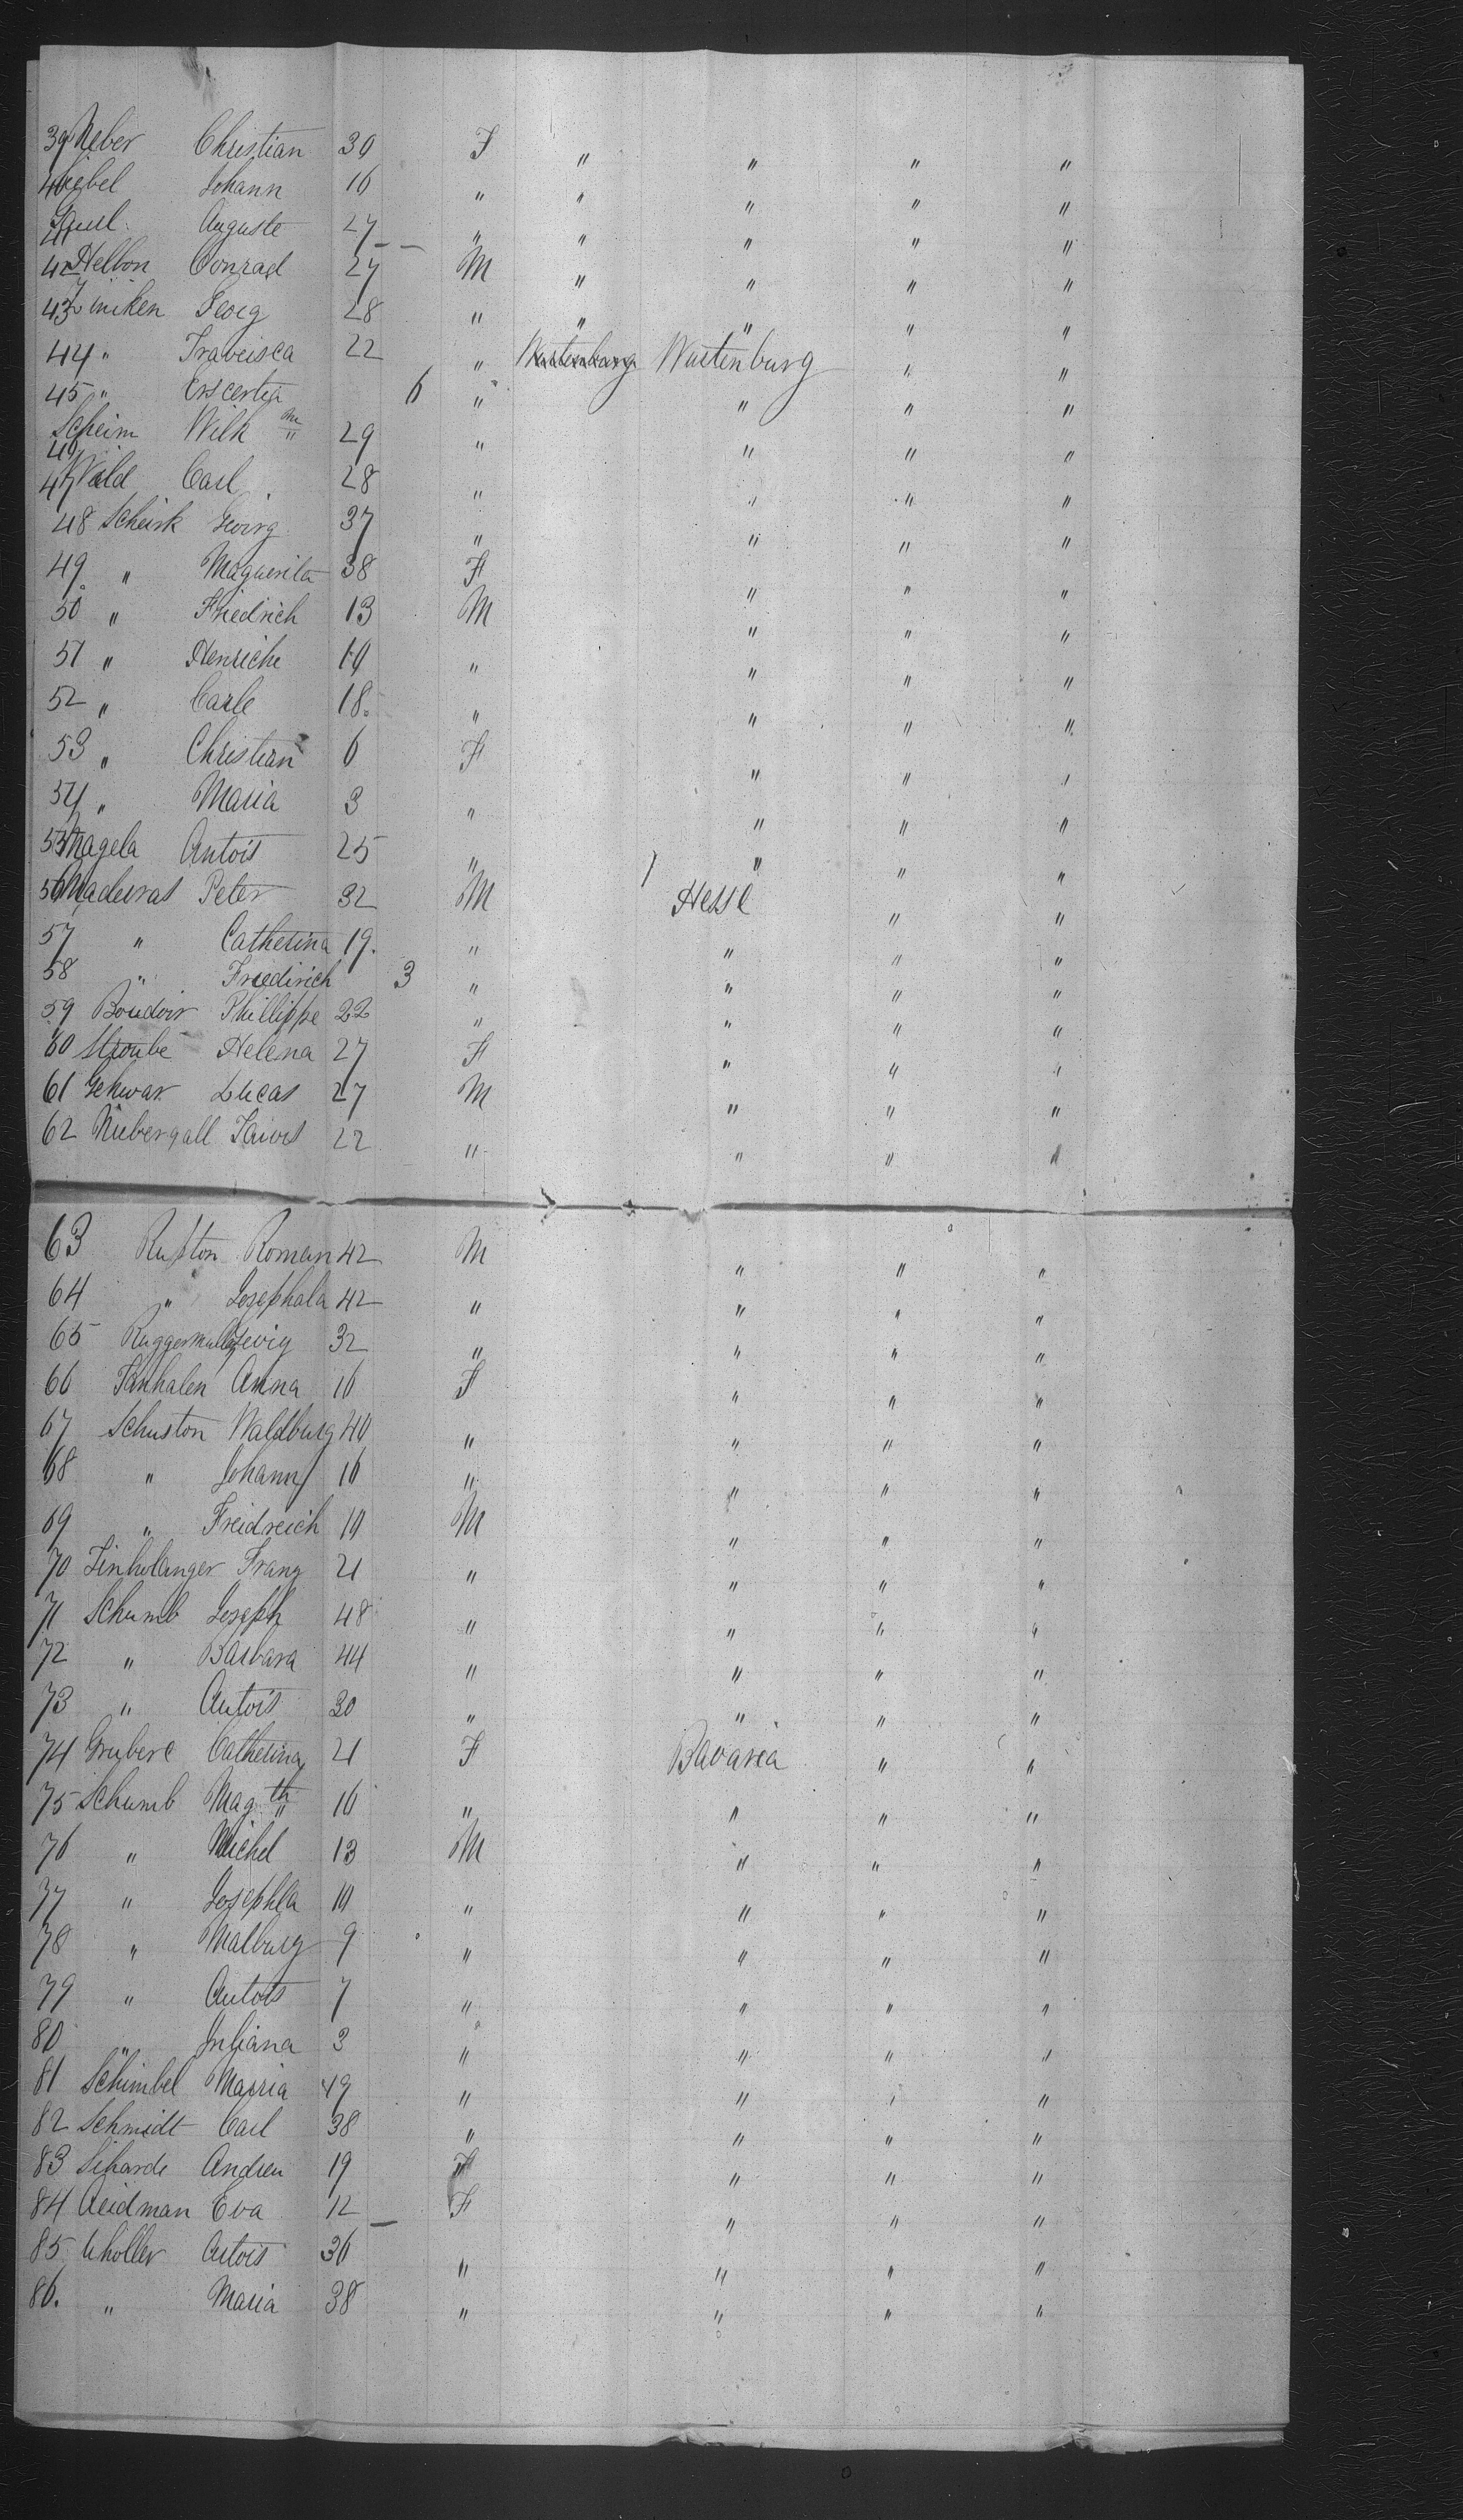 39 Neber Christian 30 F " " " "
40 Liebel Johann 16 " " " " "
41 Paul Auguste 27 " " " " "
42 Hellbon Conrad 27 M " " " "
43 Zeuiken Georg 28 " " " " "
44 " Franciska 22 " Wurtenburg Wurtenburg " "
45 " Crscentia 6 " " " "
46 Scheim Wilh m 29 " " " "
47 Wald Carl 28 " " " "
48 Scheirk Georg 37 " " " "
49 " Maguerita 38 F " " "
50 " Friedrich 13 M " " "
51 " Henriche 10 " " " "
52 " Carle 18 " " " "
53 " Christian 6 F " " "
54 " Maria 3 " " " "
55 Nagela Antois 25 " " " "
56 Madeiras Peter 32 M Hesse " "
57 " Catherina 19. " " " "
58 " Friedirich 3 " " " "
59 Boudoir Phillippe 22 " " " "
60 Stroube Helena 27 F " " "
61 Gehwar Lucas 27 M " " "
62 Niebergall 22 " " " "
63 Rupton Roman 42 M " " "
64 " Josephala 42 " " " "
65 32 " " " "
66 Tanhalen Anna 16 F " " "
67 Schuston Waldburg 40 " " " "
68 " Johann 16 " " " "
69 " Freidreich 10 M " " "
70 Franz 21 " " " "
71 Schumb Joseph 48 " " " "
72 " Barbara 44 " " " "
73 " Antois 30 " " " "
74 Grubere Catherina 21 F Bavaria " "
75 Schumb Mag th 16 " " " "
76 " Michel 13 M " " "
77 " Josephla 10 " " " "
78 " Malburg 9 " " " "
79 " Antois 7 " " " "
80 " Juliana 3 " " " "
81 Schimbel Marria 49 " " " "
82 Schmidt Carl 38 " " " "
83 Siharde Andreu 19 " " "
84 Aeidman Eva 12 F " " "
85 Uholler Antois 36 " " " "
86. " Maria 38 " " " "